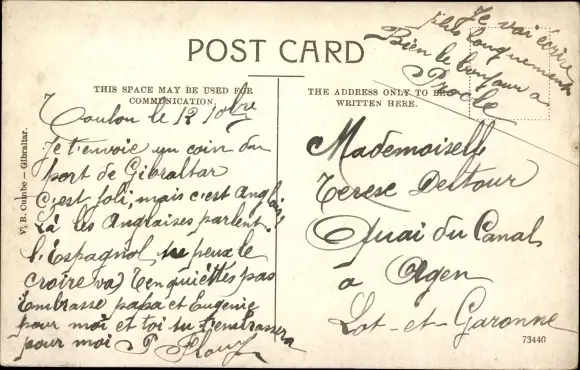 Je vai écrire
plus longuement
Bien le bonjour a
POST CARD
THIS SPACE MAY BE USED FOR
COMMUNICATION.
THE ADDRESS ONLY TO BE
WRITTEN HERE.
V. B. Cumbo – Gibraltar.
Toulon le 12
Je t'envoie un coin du
port de Gibraltar
C'est joli, mais c'est Anglais,
Là les Anglaises parlent
l'Espagnol, tu peux le
croire va) t'enquiettes pas
Embrasse papa et Eugenie
pour moi et toi tu t'embrassera
pour moi P
Mademoiselle
Terese Deltour
Quai du Canal
a Agen
Lot-et-Garonne
73440